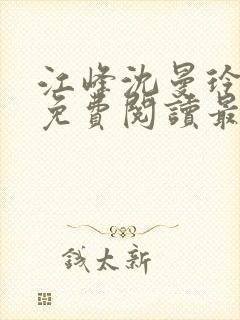 江峰沈曼玲
免費閱讀最
錢太新